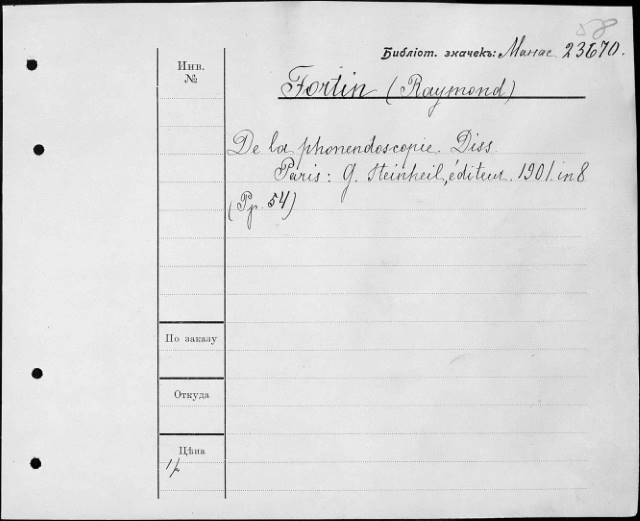 58
Библіот. значекъ: Манас 23670.
Инв.
№
Fortin (Raymond)
De la phonendoscopie. Diss.
Paris: G. Steinheil, éditeur. 1901. in 8
(Pp. 54)
По заказу
Откуда
Цѣна